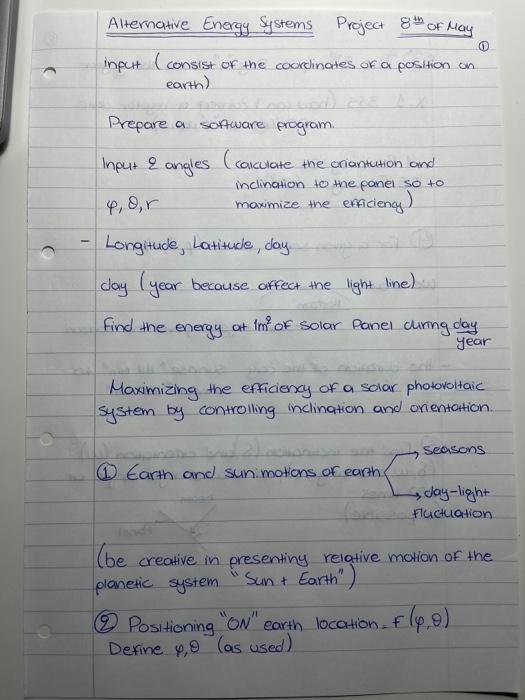 Alternative Energy Systems Project 8th of May
①
input (consist of the coordinates of a position on
earth)
Prepare a software program.
Input 2 angles (calculate the oriantation and
inclination to the panel so to
φ, θ, r maximize the efficiency)
- Longitude, Latitude, day
day (year because affect the light line)
Find the energy at 1m² of solar Panel during day
year
Maximizing the efficiency of a solar photovoltaic
system by controlling inclination and orientation.
① Earth and sun: motions of earth
→ seasons
→ day-light
fluctuation
(be creative in presenting relative motion of the
planetic system "Sun + Earth")
② Positioning "ON" earth location = f(φ,θ)
Define φ,θ (as used)